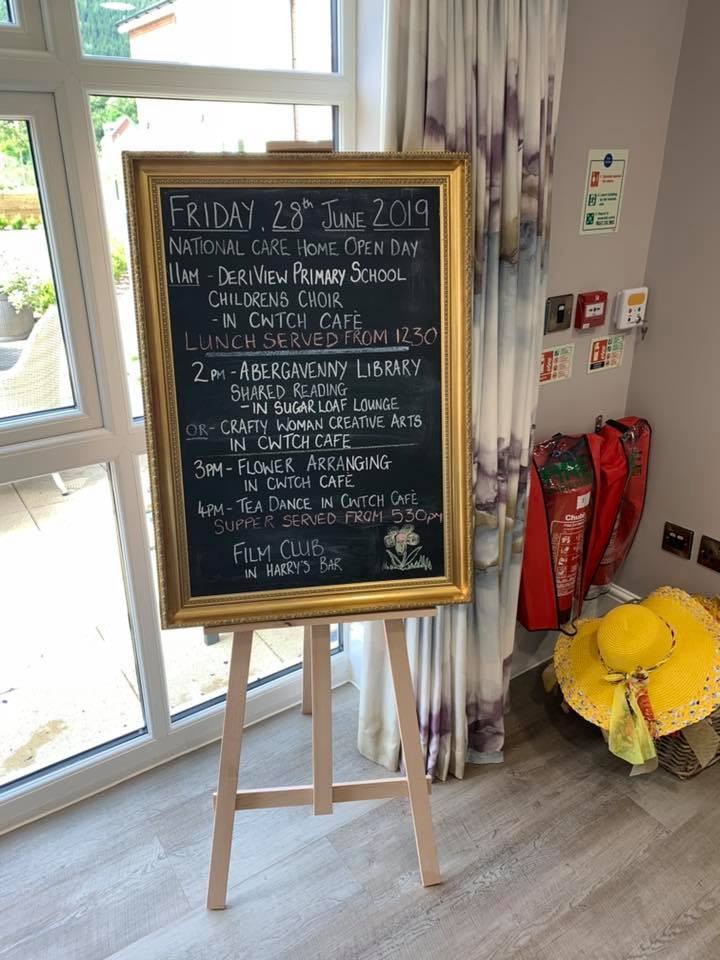 FRIDAY, 28th JUNE 2019
NATIONAL CARE HOME OPEN DAY
11AM - DERIVIEW PRIMARY SCHOOL
CHILDRENS CHOIR
- IN CWTCH CAFÈ
LUNCH SERVED FROM 1230
2PM - ABERGAVENNY LIBRARY
SHARED READING
- IN SUGAR LOAF LOUNGE
OR - CRAFTY WOMAN CREATIVE ARTS
IN CWTCH CAFE
3PM - FLOWER ARRANGING
IN CWTCH CAFÈ
4PM - TEA DANCE IN CWTCH CAFÈ
SUPPER SERVED FROM 530PM
FILM CLUB
IN HARRY'S BAR
Chubb